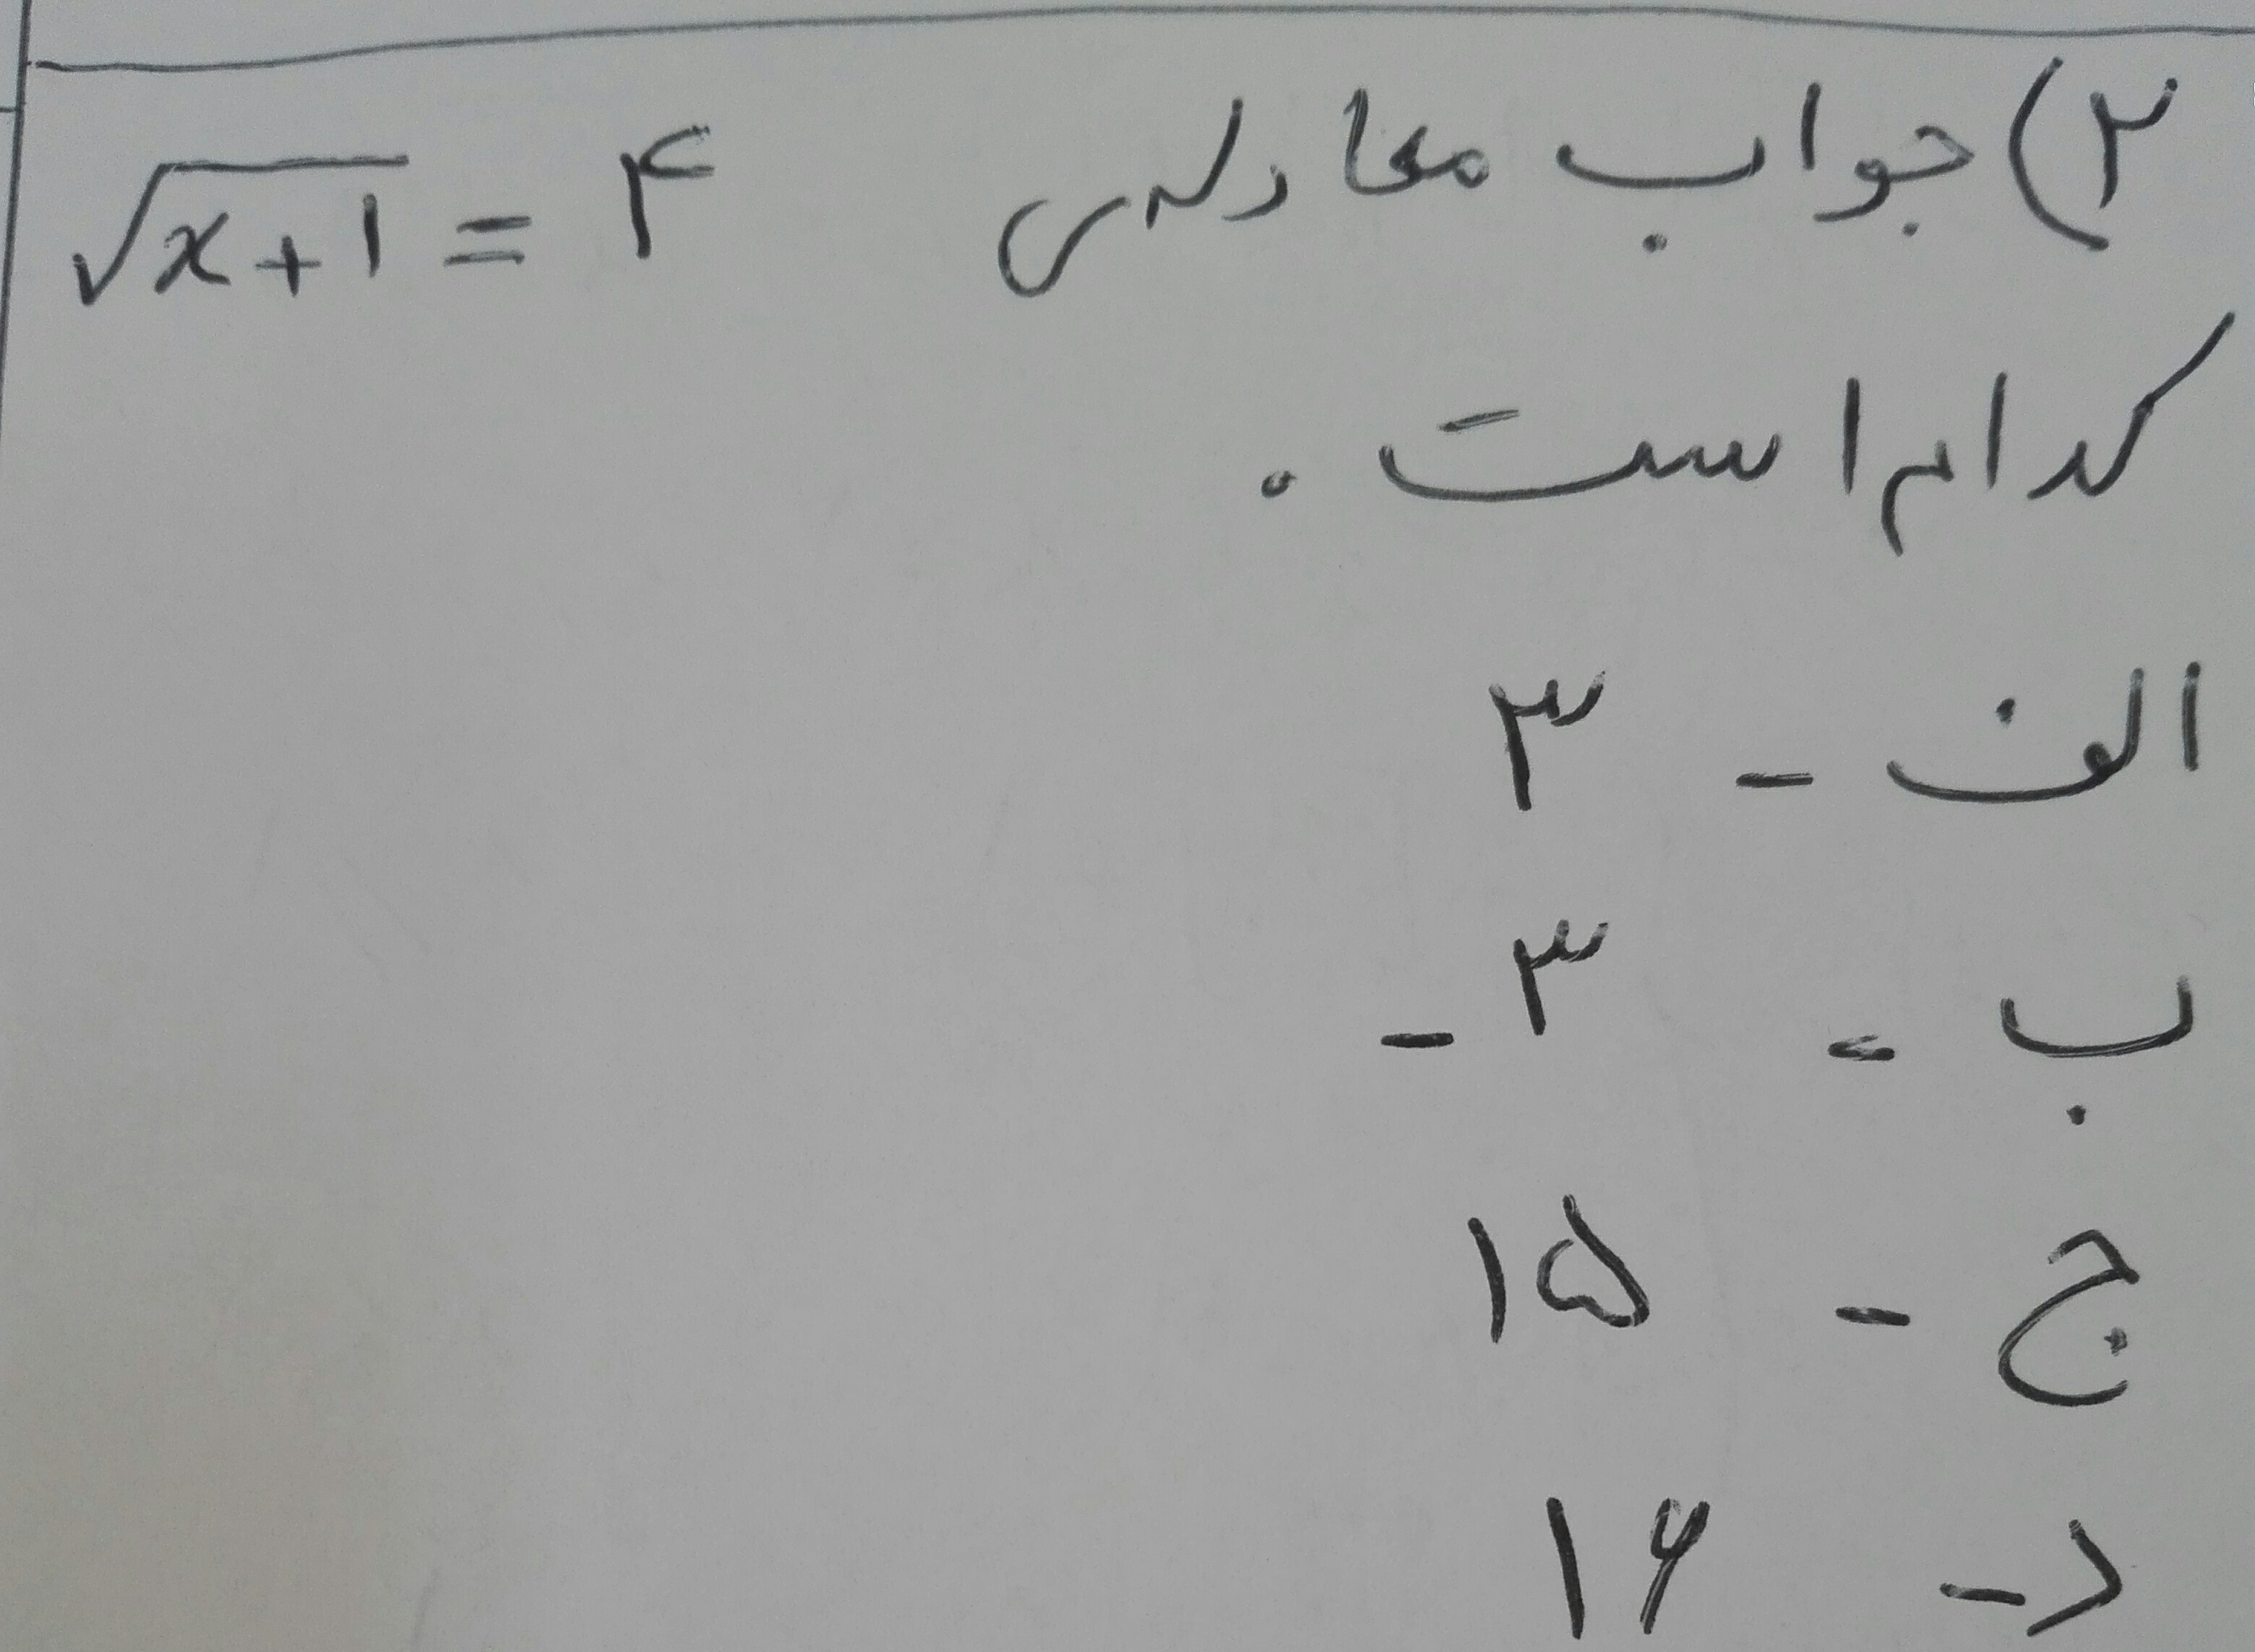 ۲) جواب معادله‌ی √x+1 = ۴
کدام است .
الف - ۳
ب - ۳-
ج - ۱۵
د - ۱۶